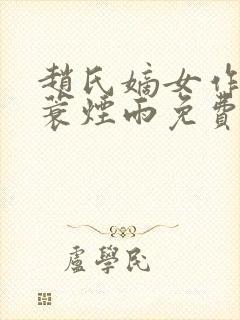 趙氏嫡女作
蓑煙雨免費
盧學民